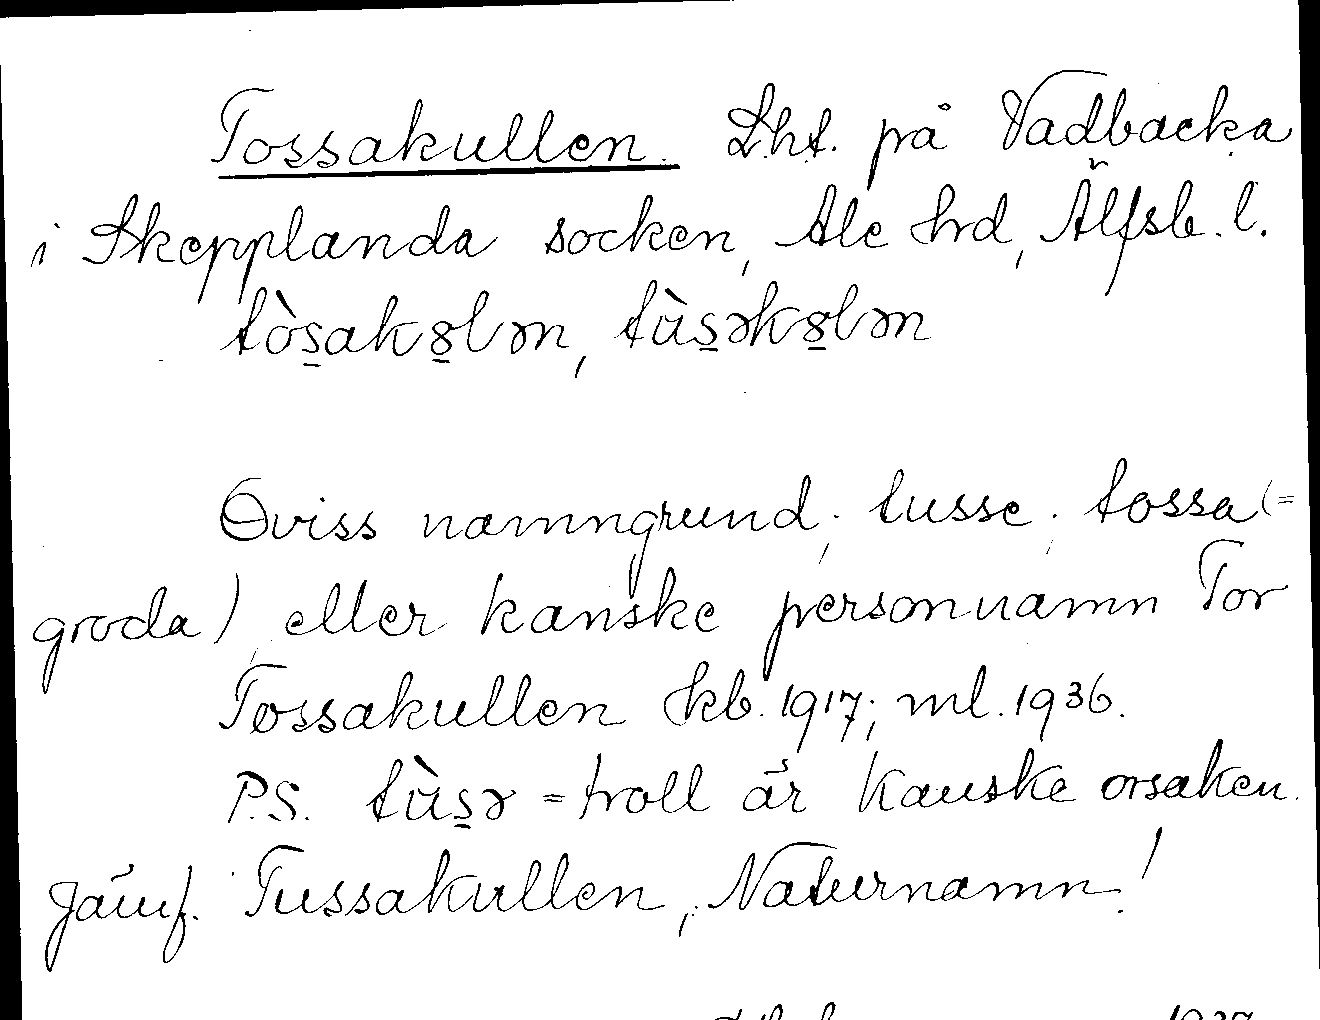 Tossakullen. Lht. på Vadbacka
i Skepplanda socken, Ale hrd, Älfsb. l.
tòs̠ak8̠lən, tùs̠ək8̠lən
Oviss namngrund; tusse; tossa (=
groda), eller kanske personnamn Tor
Tossakullen kb. 1917; ml. 1936.
P.S. tùs̠ə = troll är kanske orsaken.
Jämf. Tussakullen, Naturnamn!